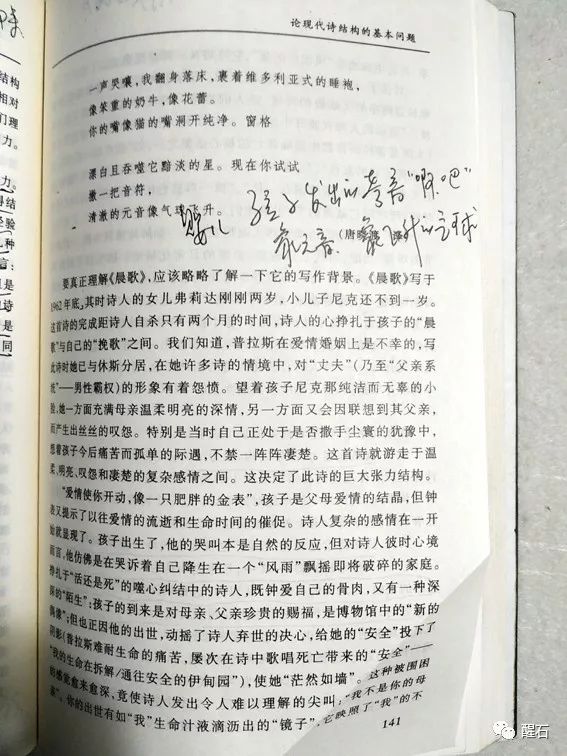 论现代诗结构的基本问题
一声哭嚷，我翻身落床，裹着维多利亚式的睡袍，
像笨重的奶牛，像花蕾。
你的嘴像猫的嘴澜开纯净。窗格
漂白且吞噬它黯淡的星。现在你试试
撒一把音符，
清澈的元音像气球飞升。
婴儿
孩子发出的声音“啊、吧”
（唐晓渡 译）
要真正理解《晨歌》，应该略略了解一下它的写作背景。《晨歌》写于
1962年底，其时诗人的女儿弗莉达刚刚两岁，小儿子尼克还不到一岁。
这首诗的完成距诗人自杀只有两个月的时间，诗人的心挣扎于孩子的“晨
歌”与自己的“挽歌”之间。我们知道，普拉斯在爱情婚姻上是不幸的，写
此诗时她已与休斯分居，在她许多诗的情境中，对“丈夫”（乃至“父亲系
统”——男性霸权）的形象有着怨愤。望着孩子尼克那纯洁而无辜的小
脸，她一方面充满母亲温柔明亮的深情，另一方面又会因联想到其父亲，
而产生出丝丝的叹怨。特别是当时自己正处于是否撒手尘寰的犹豫中，
想着孩子今后痛苦而孤单的际遇，不禁一阵阵凄楚。这首诗就游走于温
柔、明亮、叹怨和凄楚的复杂感情之间。这决定了此诗的巨大张力结构。
“爱情使你开动，像一只肥胖的金表”，孩子是父母爱情的结晶，但钟
表又提示了以往爱情的流逝和生命时间的催促。诗人复杂的感情在一开
始就显现了。孩子出生了，他的哭叫本是自然的反应，但对诗人彼时心境
而言，他仿佛是在哭诉着自己降生在一个“风雨”飘摇即将破碎的家庭。
挣扎于“活还是死”的噬心纠结中的诗人，既钟爱自己的骨肉，又有一种深
深的“陌生”；孩子的到来是对母亲、父亲珍贵的赐福，是博物馆中的“新的
偶像”；但也正因他的出世，动摇了诗人弃世的决心，给她的“安全”投下了
阴影（普拉斯难耐生命的痛苦，屡次在诗中歌唱死亡带来的“安全”——
“我的生命在拆解/通往安全的伊甸园”），使她“茫然如墙”。这种被围困
的感觉愈来愈深，竟使诗人发出令人难以理解的尖叫：“我不是你的母
亲”。你的出世有如“我”生命汁液滴沥出的“镜子”，它映照了“我”的不
141
醒石